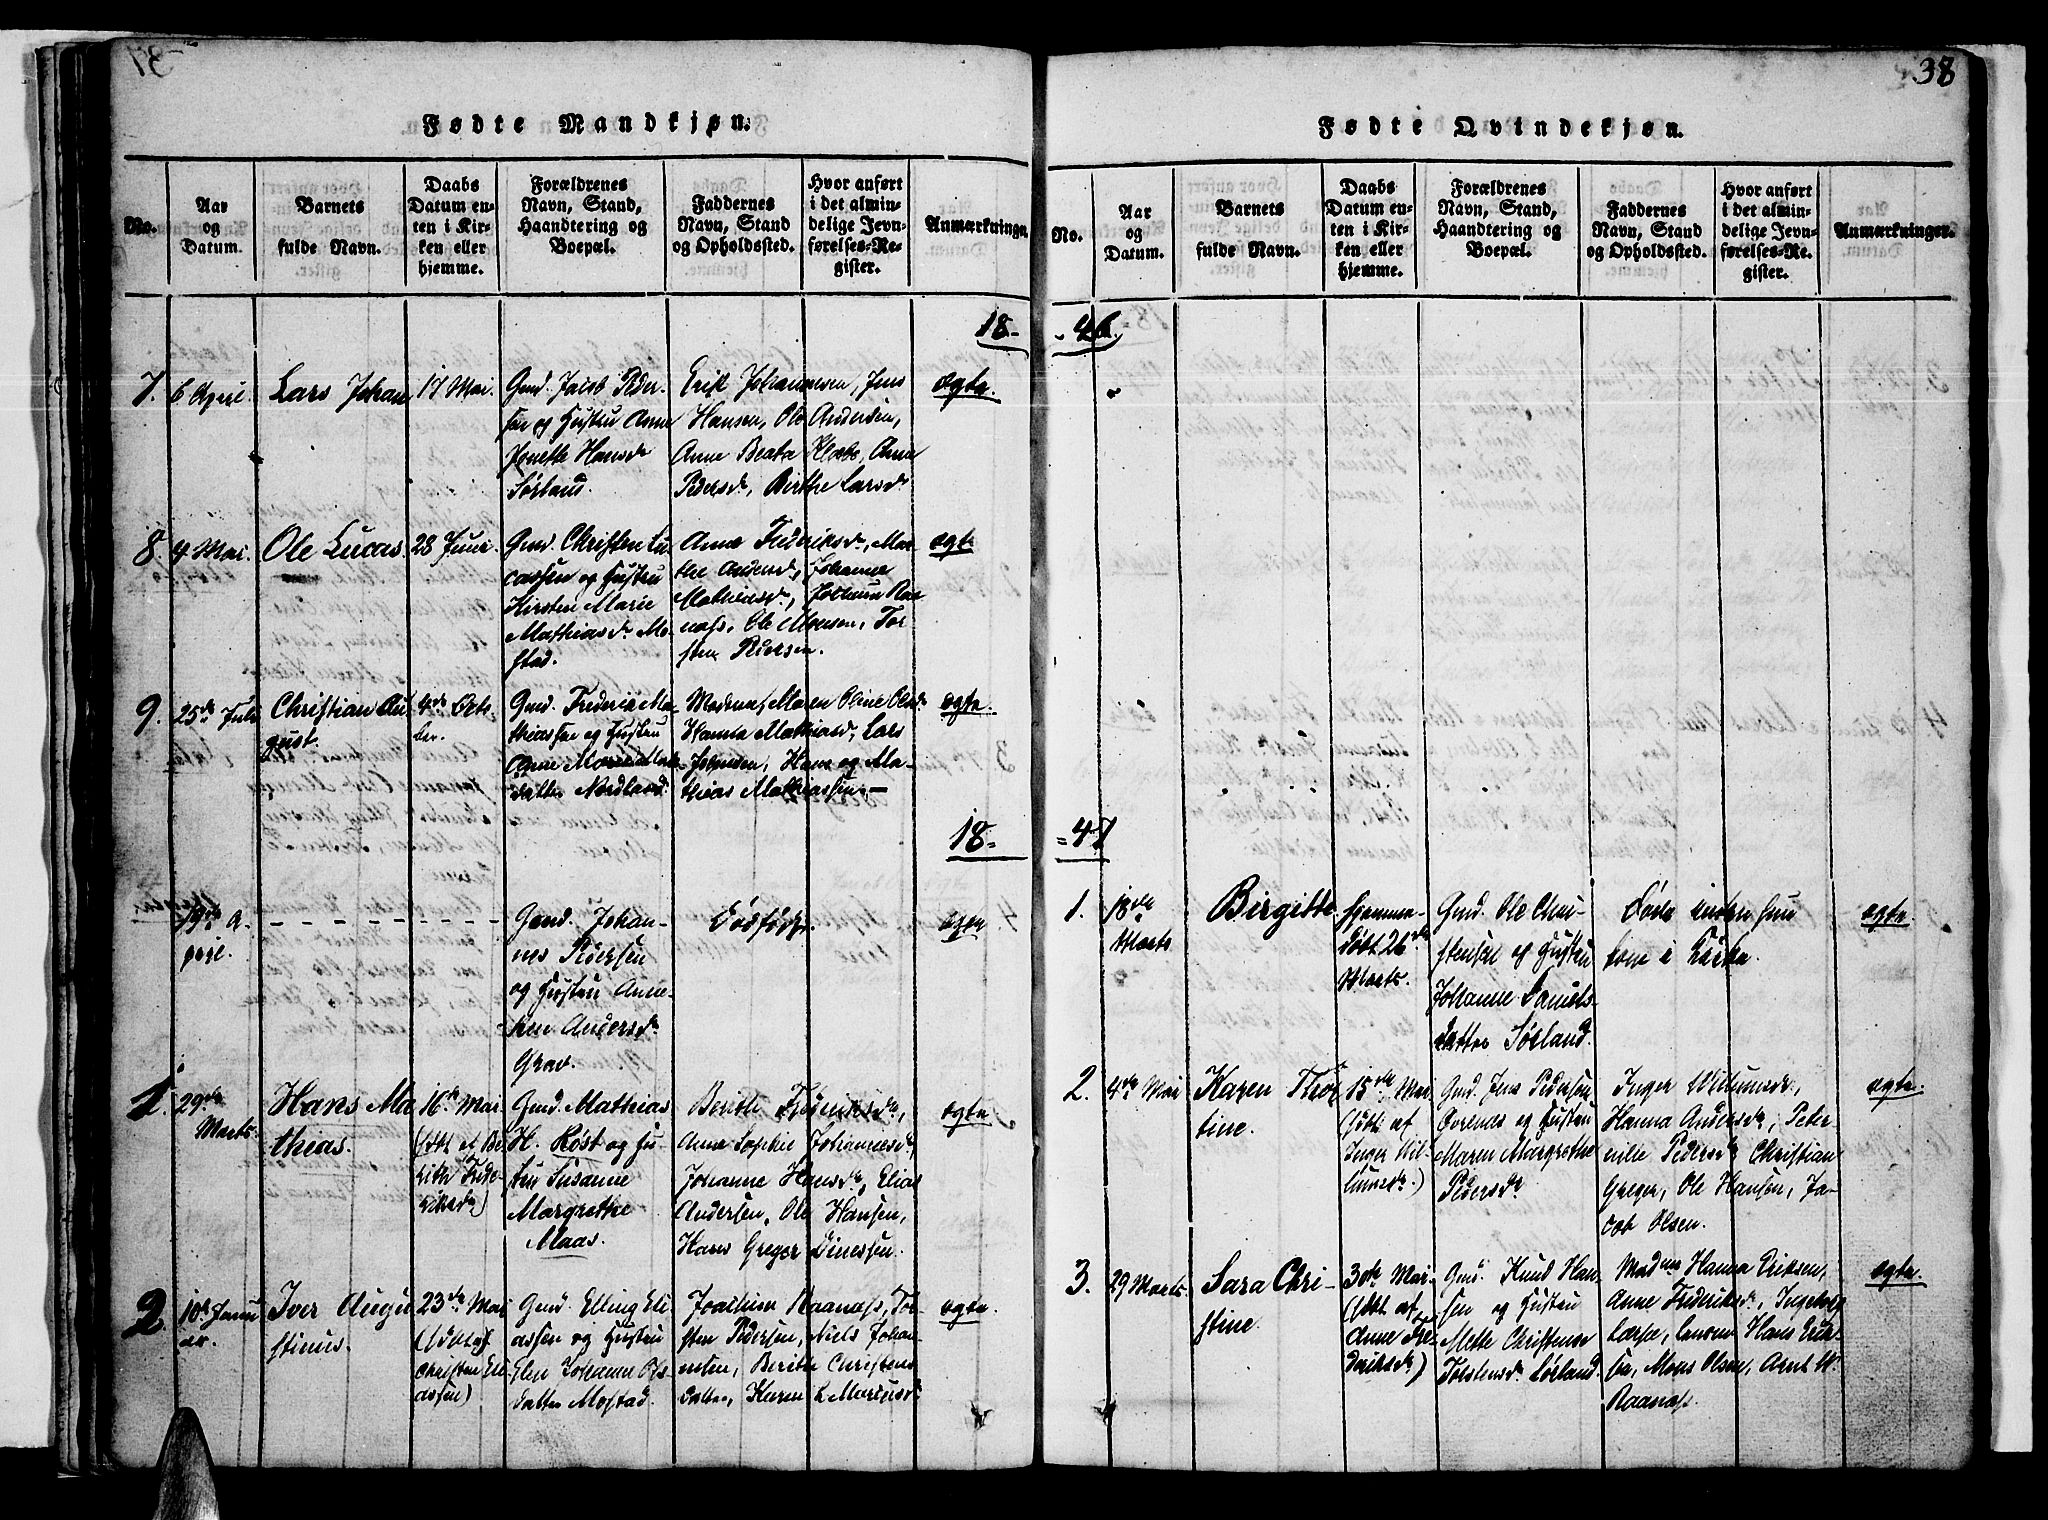 38
Fødte Mandkjøn.
No.
Aar
og
Datum.
Barnets
fulde Navn.
Daabs
Datum en-
ten i Kir-
ken eller
hjemme.
Forældrenes
Navn, Stand,
Haandtering og
Boepæl.
Faddernes
Navn, Stand
og Opholdssted.
Hvor anført
i det almin-
delige Jevn-
førelses-Re-
gister.
Anmærkninger.
18-
7.
6 April
Lars Johan
17 Mai.
Gmd. Jacob Peder-
sen og Hustru Anne
Jonette Hansd.
Sørland.
Erik Johannesen, Jens
Hansen, Ole Andersen,
Anne Beata Anna
Pedersd., Birthe Larsd.
ægte.
8.
4 Mai.
Ole Lucas.
28 Juni.
Gmd. Christen Lu-
cassen og Hustru
Kirsten Marie
Mathiasdr Mo-
stad.
Anne Fredriksdr, Mar-
the Andersdr, Johanna
Mathiasdr, Johann Raa-
næss, Ole Monsen, Tor-
sten Pedersen.
ægte
9.
25de Juli
Christian Au-
gust.
4de Octo-
ber.
Gmd. Frederik Ma-
thiassen og Hustru
Anne Marie
datter Nordland.
Madame Maren Oline Olsdr
Hanna Mathiasdr, Lars
Johnsen, Hans og Ma-
thias Mathiassen.
ægte.
18-
19de A-
pril.
Gmd. Johan-
nes Pedersen
og Hustru Anne-
ken Andersdr
Grav.
Dødfødt.
ægte
1.
29de
Marts.
Hans Ma-
thias.
16de Mai
(døbt af Be-
rith Frede-
riksdr)
Gmd. Matthias
H. Røst og Hu-
stru Susanne
Margrethe
Maas.
Berith Frederiksdr,
Anne Sophie Johannesdr,
Johanne Hansdr, Elias
Andersen, Ole Hansen,
Hans Greger Dinessen.
ægte
2.
10de Janu-
ar.
Iver Augu-
stinus.
23de Mai
(døbt af
Christen Eli-
assen)
Gmd. Elling Eli-
assen og Hustru
Elen Johanna
datter Mostad.
Joachim Raanæss, Tor-
sten Pedersen, Niels Johan-
nesen, Berith Christens-
datter, Karen L. Mariusdr
ægte.
Fødte Qvindekjøn.
No.
Aar
og
Datum.
Barnets
fulde Navn.
Daabs
Datum en-
ten i Kir-
ken eller
hjemme.
Forældrenes
Navn, Stand,
Haandtering og
Boepæl.
Faddernes
Navn, Stand
og Opholdssted.
Hvor anført
i det almin-
delige Jevn-
førelses-Re-
gister.
Anmærkninger.
46.
=47
1.
18de
Marts
Birgitte
hjemme-
døbt 26de
Marts.
Gmd. Ole Chri-
stensen og Hustru
Johanne Daniels-
datter Sørland.
Døde inden hun
kom i Kirke.
ægte
2.
4de Mai
Karen
tine.
15de Mai
(døbt af
Inger Wil-
lumsdr)
Gmd. Jens Pedersen
og Hustru
Maren Margrethe
Pedersdr
Inger Willumsdr,
Hanna Andersdr, Peter-
nille Pedersdr, Christian
Greger, Ole Hansen, Ja-
cob Olsen.
ægte.
3.
29 Marts
Sara Chri-
stine.
30de Mai
(døbt af
Anne Fre-
driksdr)
Gmd. Knud Han-
sen og Hustru
Mette Christence
Torstensdr Sørland.
Madme Hanna Eriksen,
Anne Frederiksdr, Ingeborg
Hans Erik-
sen, Mons Olsen, Arnt W.
Raanæss.
ægte.